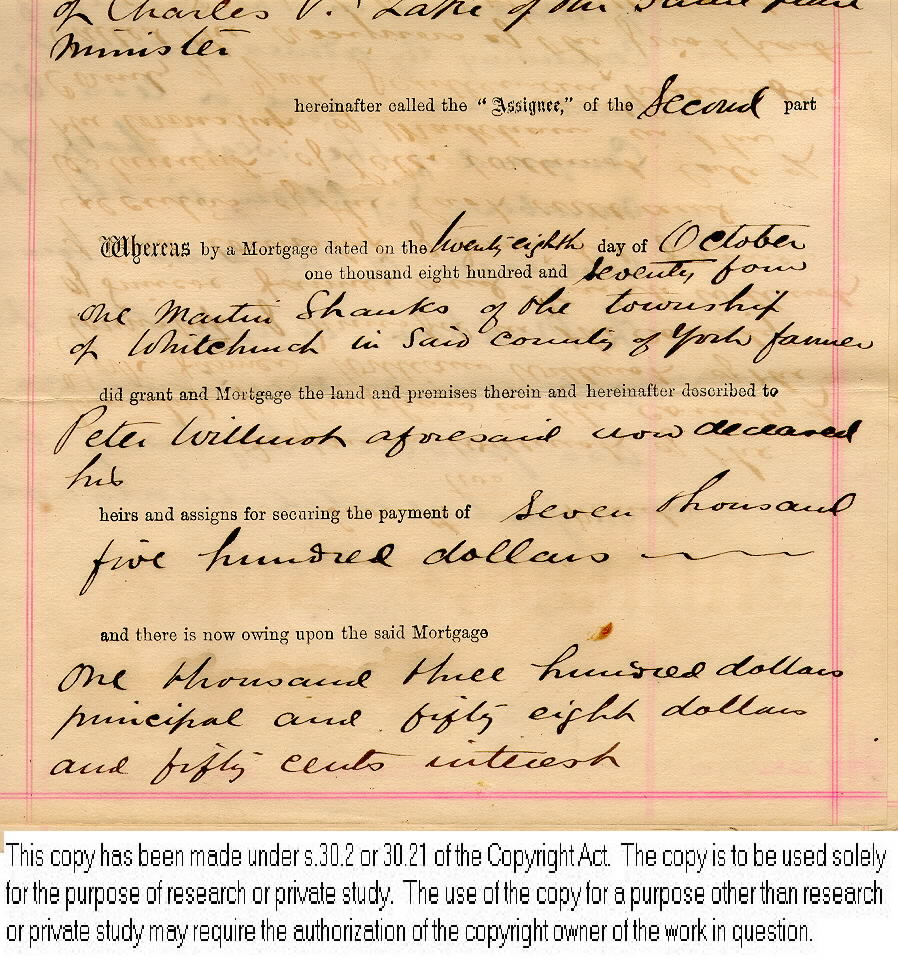 of Charles V. Lake of the same place
Minister
hereinafter called the "Assignee," of the Second part
Whereas by a Mortgage dated on the twenty eighth day of October
one thousand eight hundred and seventy four
one Martin Shanks of the township
of Whitchurch in said county of York farmer
did grant and Mortgage the land and premises therein and hereinafter described to
Peter Willmot aforesaid now deceased
his
heirs and assigns for securing the payment of seven thousand
five hundred dollars
and there is now owing upon the said Mortgage
One thousand three hundred dollars
principal and fifty eight dollars
and fifty cents interest
This copy has been made under s.30.2 or 30.21 of the Copyright Act. The copy is to be used solely
for the purpose of research or private study. The use of the copy for a purpose other than research
or private study may require the authorization of the copyright owner of the work in question.